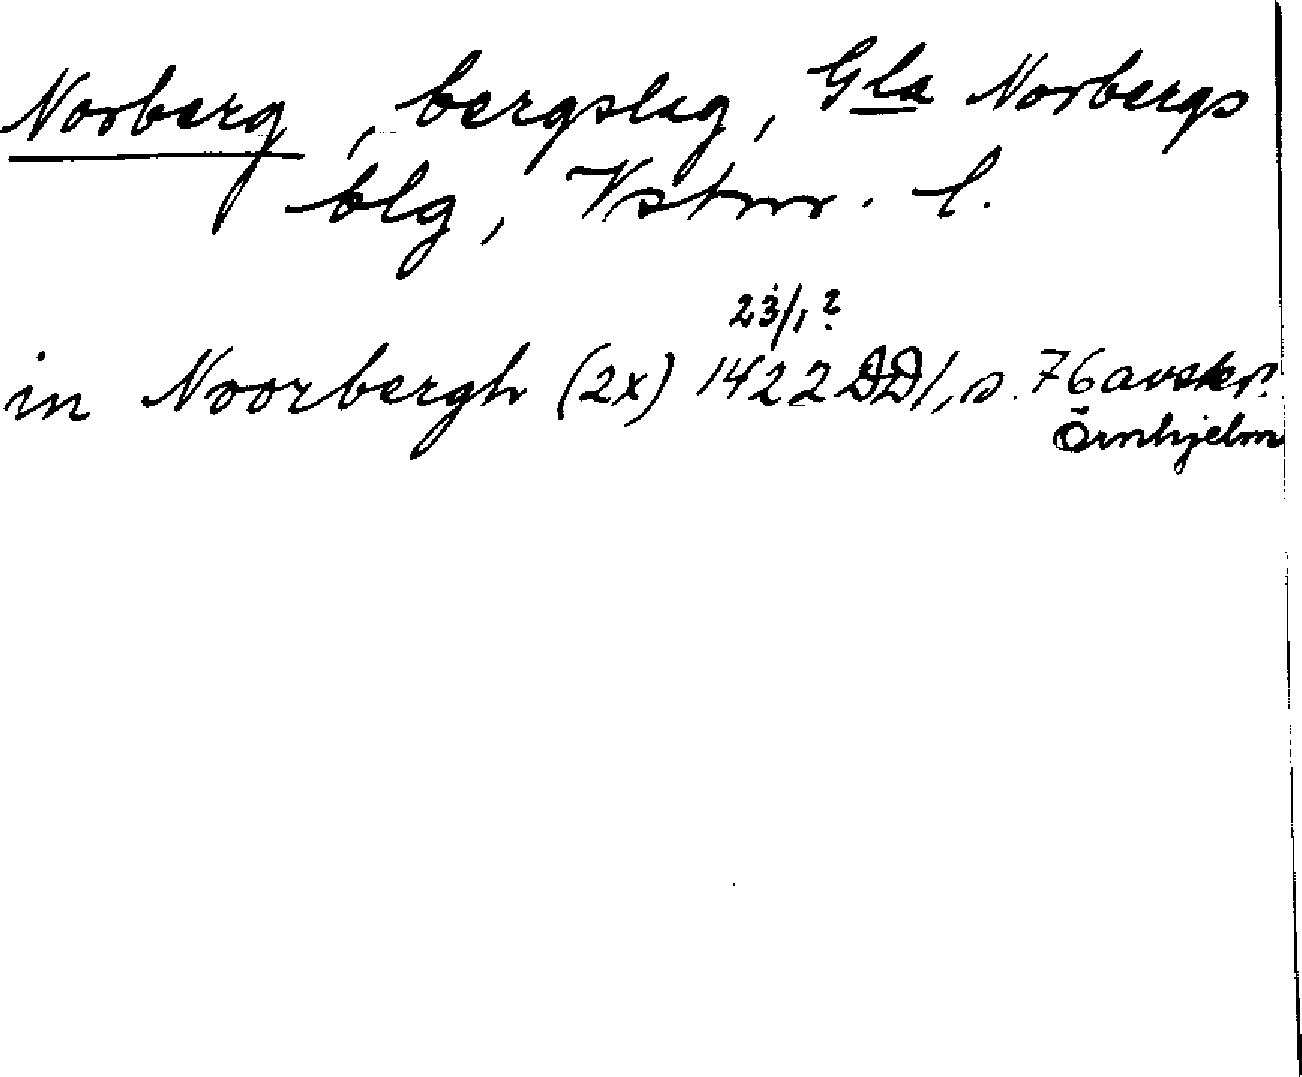 Norberg, bergslag, Gla Norbergs
blg, Vstm. l.
23/1 ?
in Noorbergh (2x) 1422 DD1, s. 76 avskr.
Örnhjelm